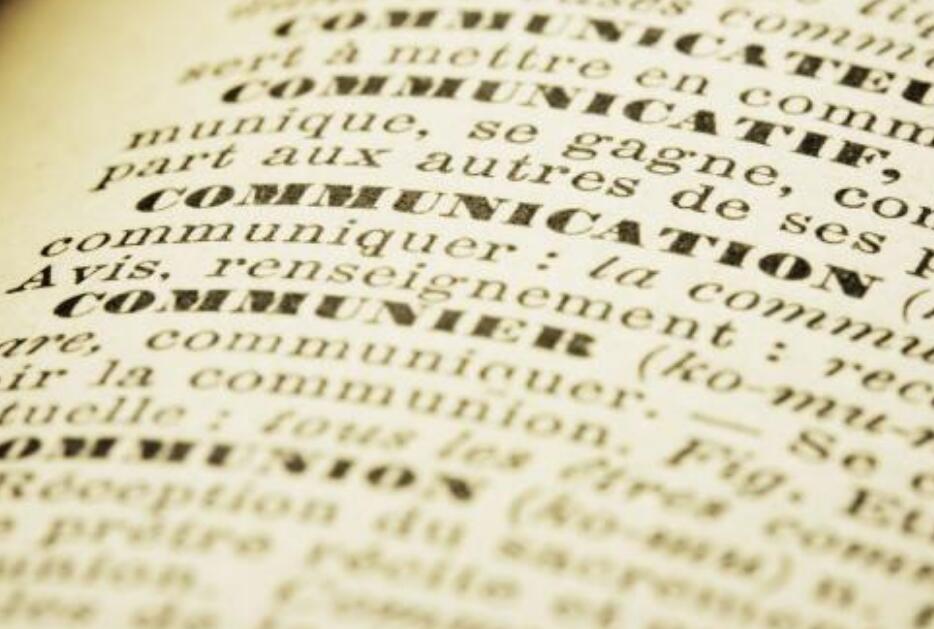 comm
COMMUNICATEU
sert à mettre en comm
COMMUNICATIF,
munique, se gagne, con
part aux autres de ses p
COMMUNICATION (
communiquer : la commu
Avis, renseignement : rec
COMMUNIER (ko-mu-n
are, communiquer. — Se
ir la communion. Fig. Et
tuelle : tous les êtres comm
OMMUNION (ko-mu) n.
Réception du sacreme
prêtre récite et
union.